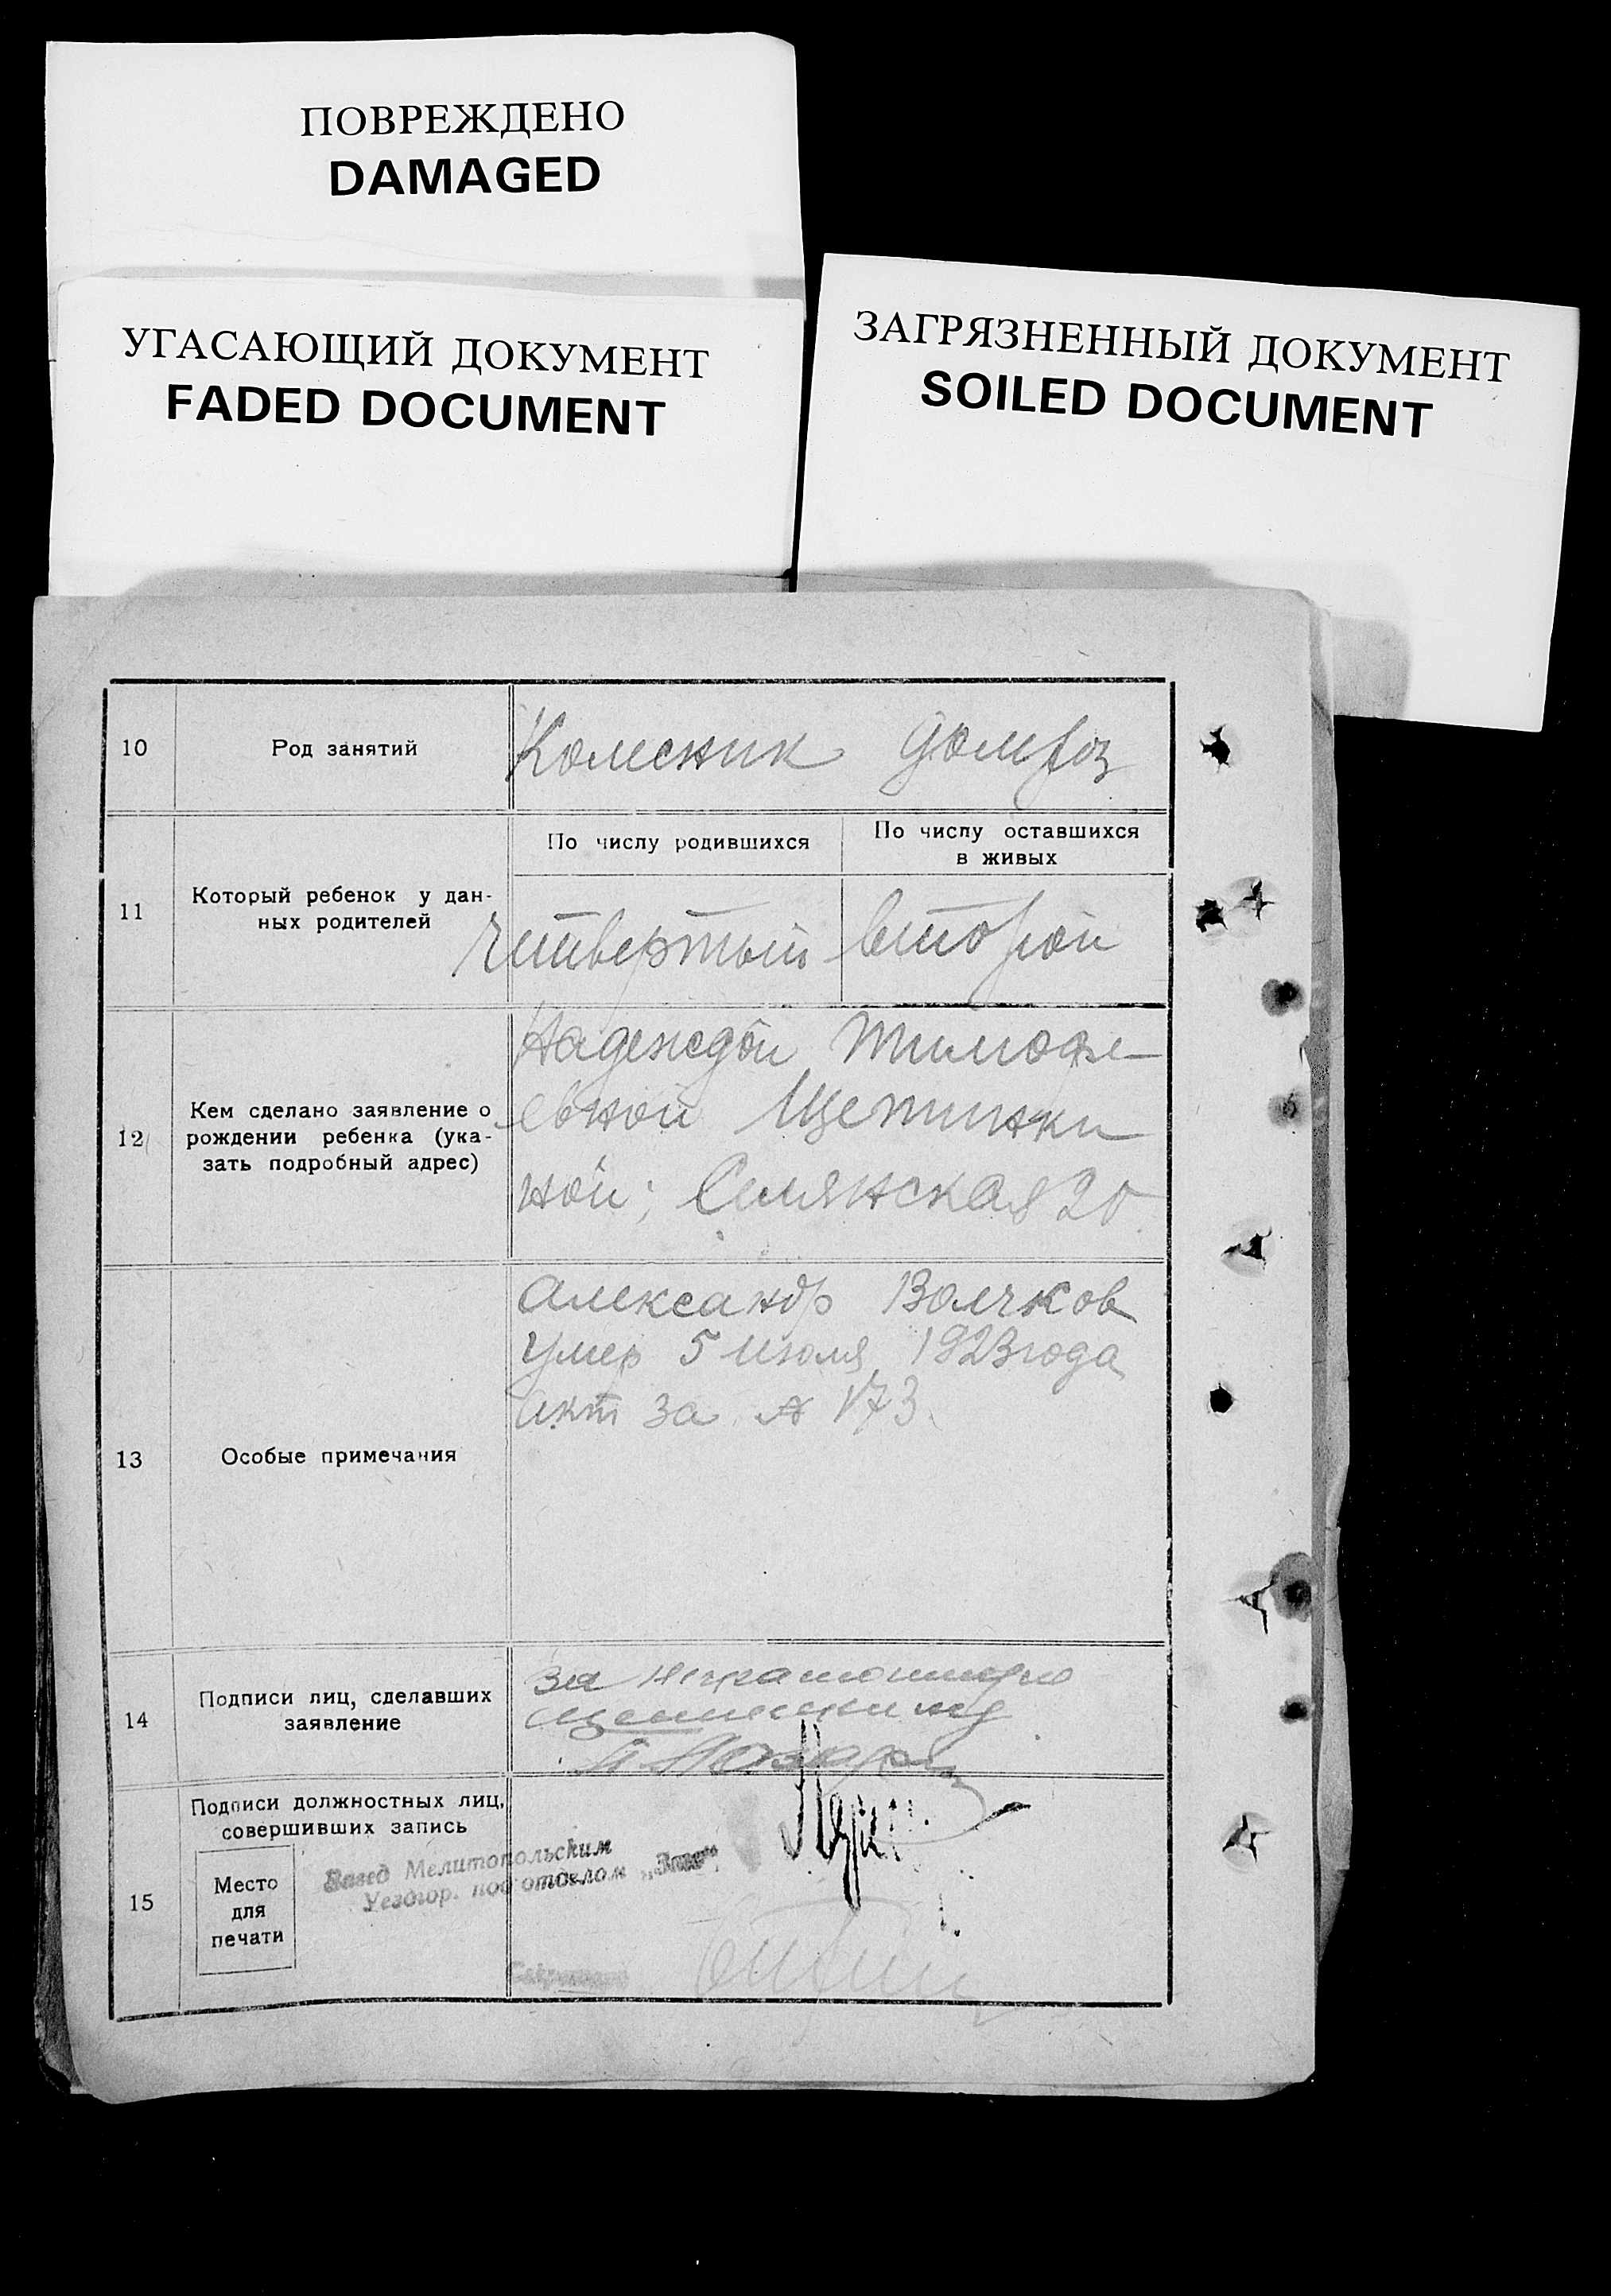 ПОВРЕЖДЕНО
DAMAGED
УГАСАЮЩИЙ ДОКУМЕНТ
FADED DOCUMENT
ЗАГРЯЗНЕННЫЙ ДОКУМЕНТ
SOILED DOCUMENT
10 Род занятий Колесник домхоз
По числу родившихся По числу оставшихся
в живых
11 Который ребенок у дан-
ных родителей
Четвертый второй
Надеждой Тимофе
12 Кем сделано заявление о
рождении ребенка (ука-
зать подробный адрес)
евной Щетинки
ной;
20
Александр Волчков
умер 5 июля 1923 года
акт за № 173
13 Особые примечания
14 Подписи лиц, сделавших
заявление
за неграмотную
Щетинкину
Подписи должностных лиц,
совершивших запись
15 Место
для
печати
Завед Мелитопольским
Уездгор. подотделом „Загс“